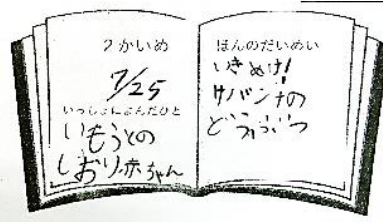 2かいめ
7/25
いっしょによんだひと
いもうとの
しおり赤ちゃん
ほんのだいめい
いきぬけ!
サバンナの
どうぶつ